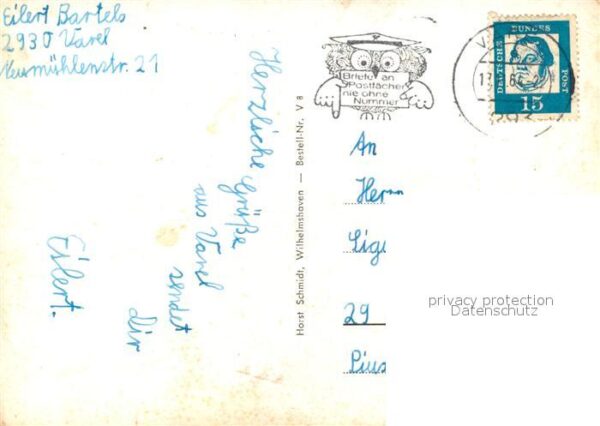 Eilert Bartels
2930 Varel
Neumühlenstr. 21
Herzliche Grüße
aus Varel
sendet
dir
Eilert.
Horst Schmidt, Wilhelmshaven — Bestell-Nr. V 8
Briefe an
Postfächer
nie ohne
Nummer
DEUTSCHE
BUNDES
POST
15
An
Herrn
29
privacy protection
Datenschutz
Pius